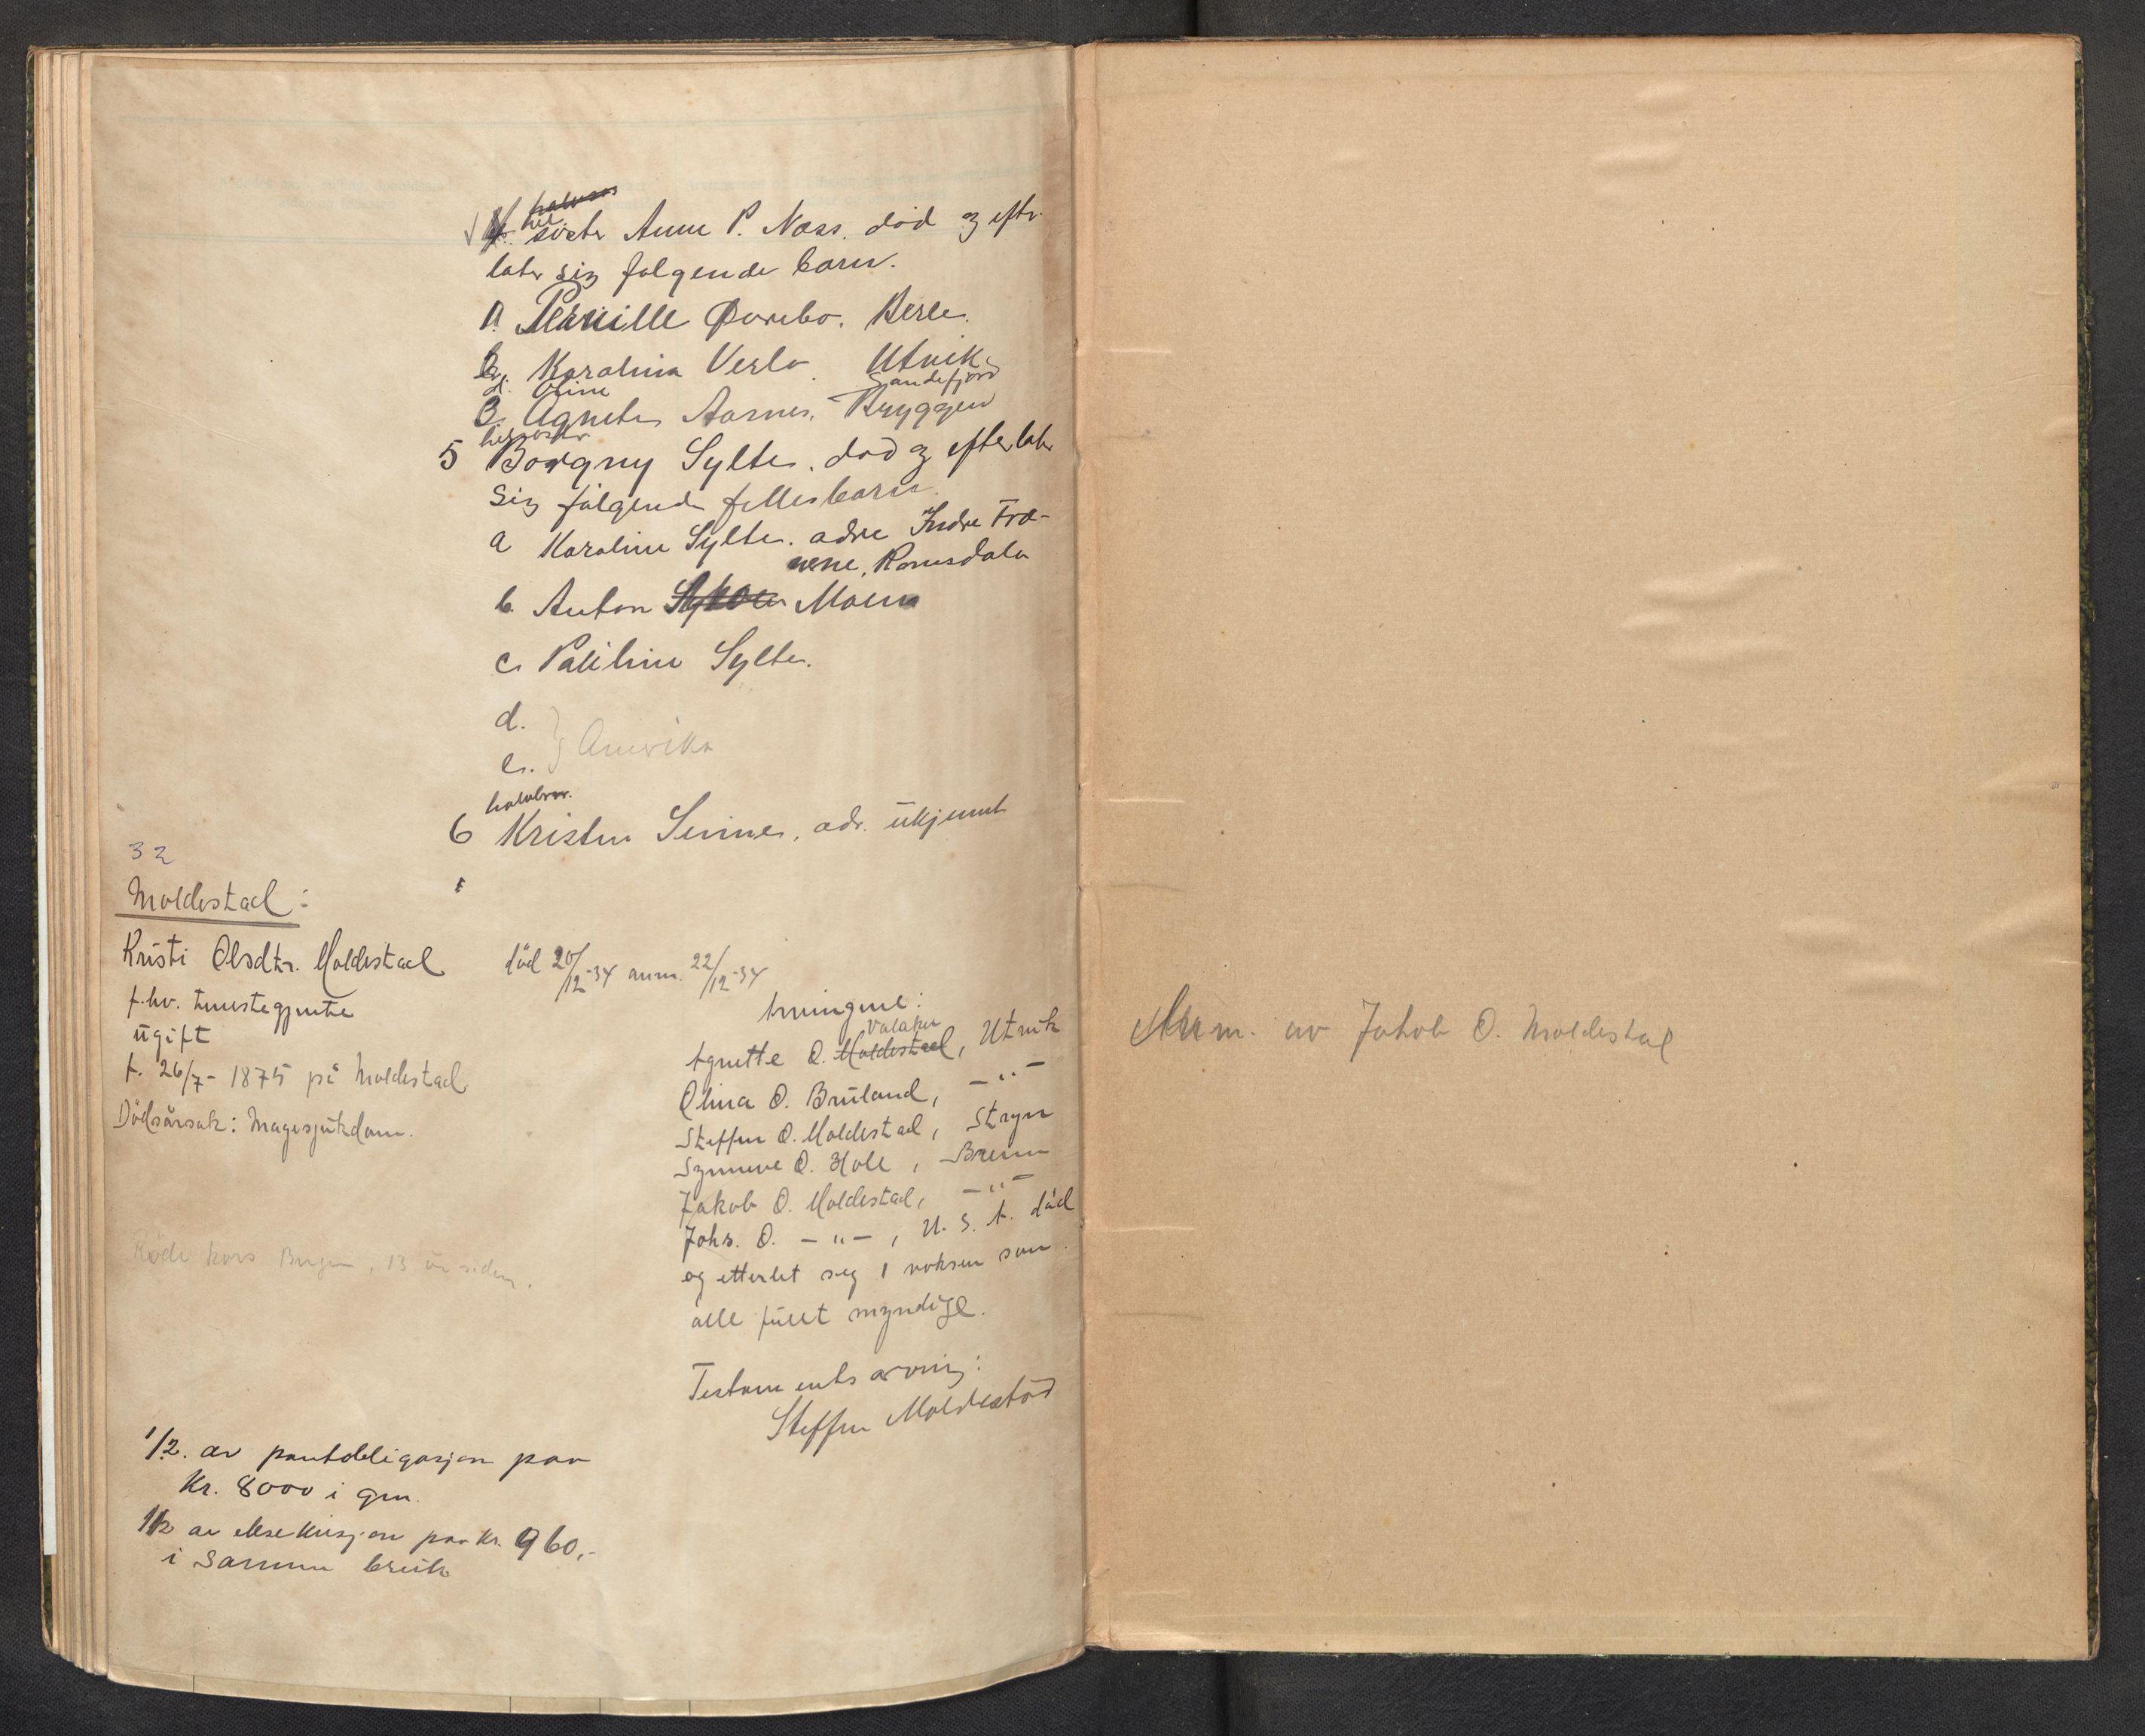 hel
4. søster Anne P. Næss. død og efter-
later sig følgende barn.
a. Pernille Ørebo. Berle.
b. Karolina Verlo. Utvik
d. Oline Sandefjord
c. Agnete Aarnes. Bryggen
helsøster
5 Borgny Sylte. død og efterlater
sig følgende fellesbarn.
a Karoline Sylte. adre Indre Fræ-
nene, Romsdalen
b. Anton Moen
c. Pauline Sylte.
d.
e. } Amerika
halvbror.
6 Kristen Sennes, adr. ukjennt
32
Moldestad:
Kristi Olsdtr. Moldestad
f.hv. tenestegjente
ugift
f. 26/7- 1875 på Moldestad
Dödsårsak: Magesjukdom.
Röde kors Bergen, 13 år siden.
död 20/12-34 anm. 22/12-34
Arvingene:
Valaker
Agnette O. Moldestad, Utvik
Olina O. Bruland, -"-
Steffen O. Moldestad, Stryn
Synneve O. Hole, Breim
Jakob O. Moldestad, -"-
Johs. O. -"-, U.S.A. död
og etterlet seg 1 voksen son.
alle fullt myndige.
Testaments arving:
Steffen Moldestad
1/2. av pantobligasjon paa
Kr. 8000 i gnr.
1/2 av eksekusjon paa kr. 960,-
i samme bruk
Anm. av Jakob O. Moldestad